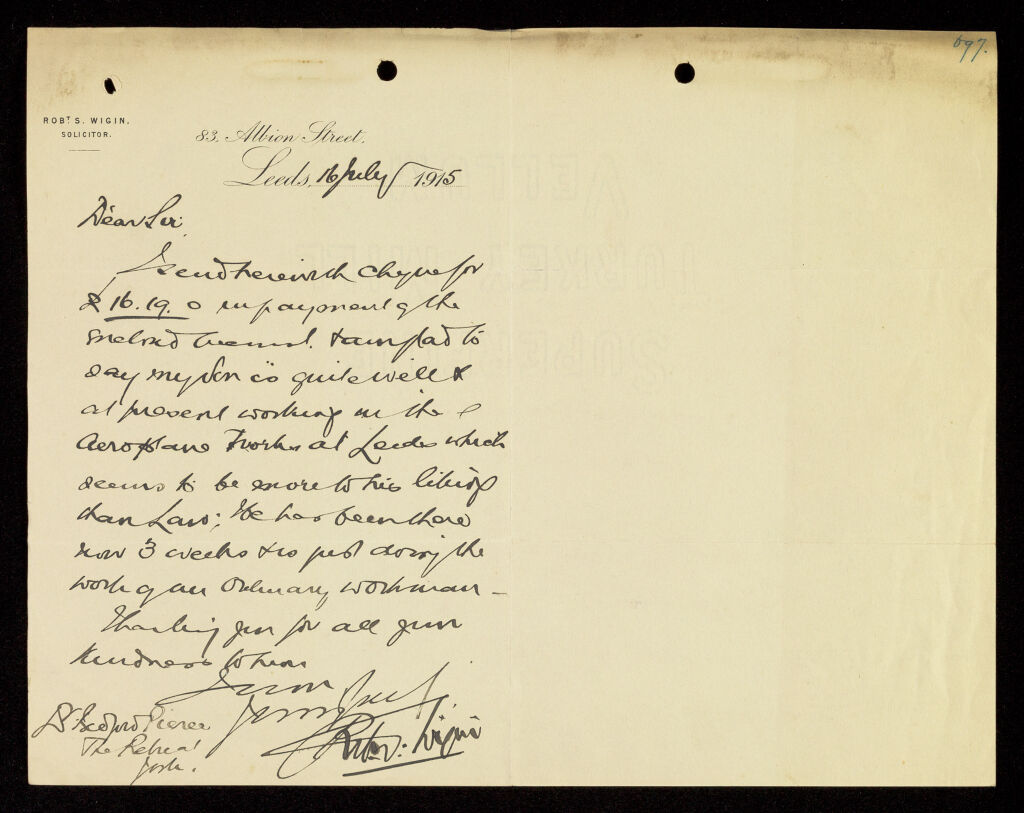 697.
ROBT. S. WIGIN,
SOLICITOR.
83, Albion Street,
Leeds, 16 July 1915
Dear Sir,
I send herewith cheque for
£16.19.0 in payment of the
enclosed account. I am glad to
say my Son is quite well &
at present working in the
Aeroplane Works at Leeds which
seems to be more to his liking
than Law; He has been there
now 3 weeks & is just doing the
work of an Ordinary workman –
Thanking you for all your
kindness to him
I am
Yours truly,
Robt. S. Wigin
Dr Bedford Pierce
The Retreat
York.